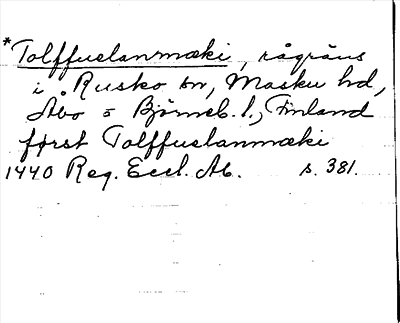 *Tolffuslanmæki, rågräns
i Rusko sn, Masku hd,
Åbo o Björneb. l., Finland
först Tolffuslanmæki
1440 Reg. Eccl. Ab. s. 381.